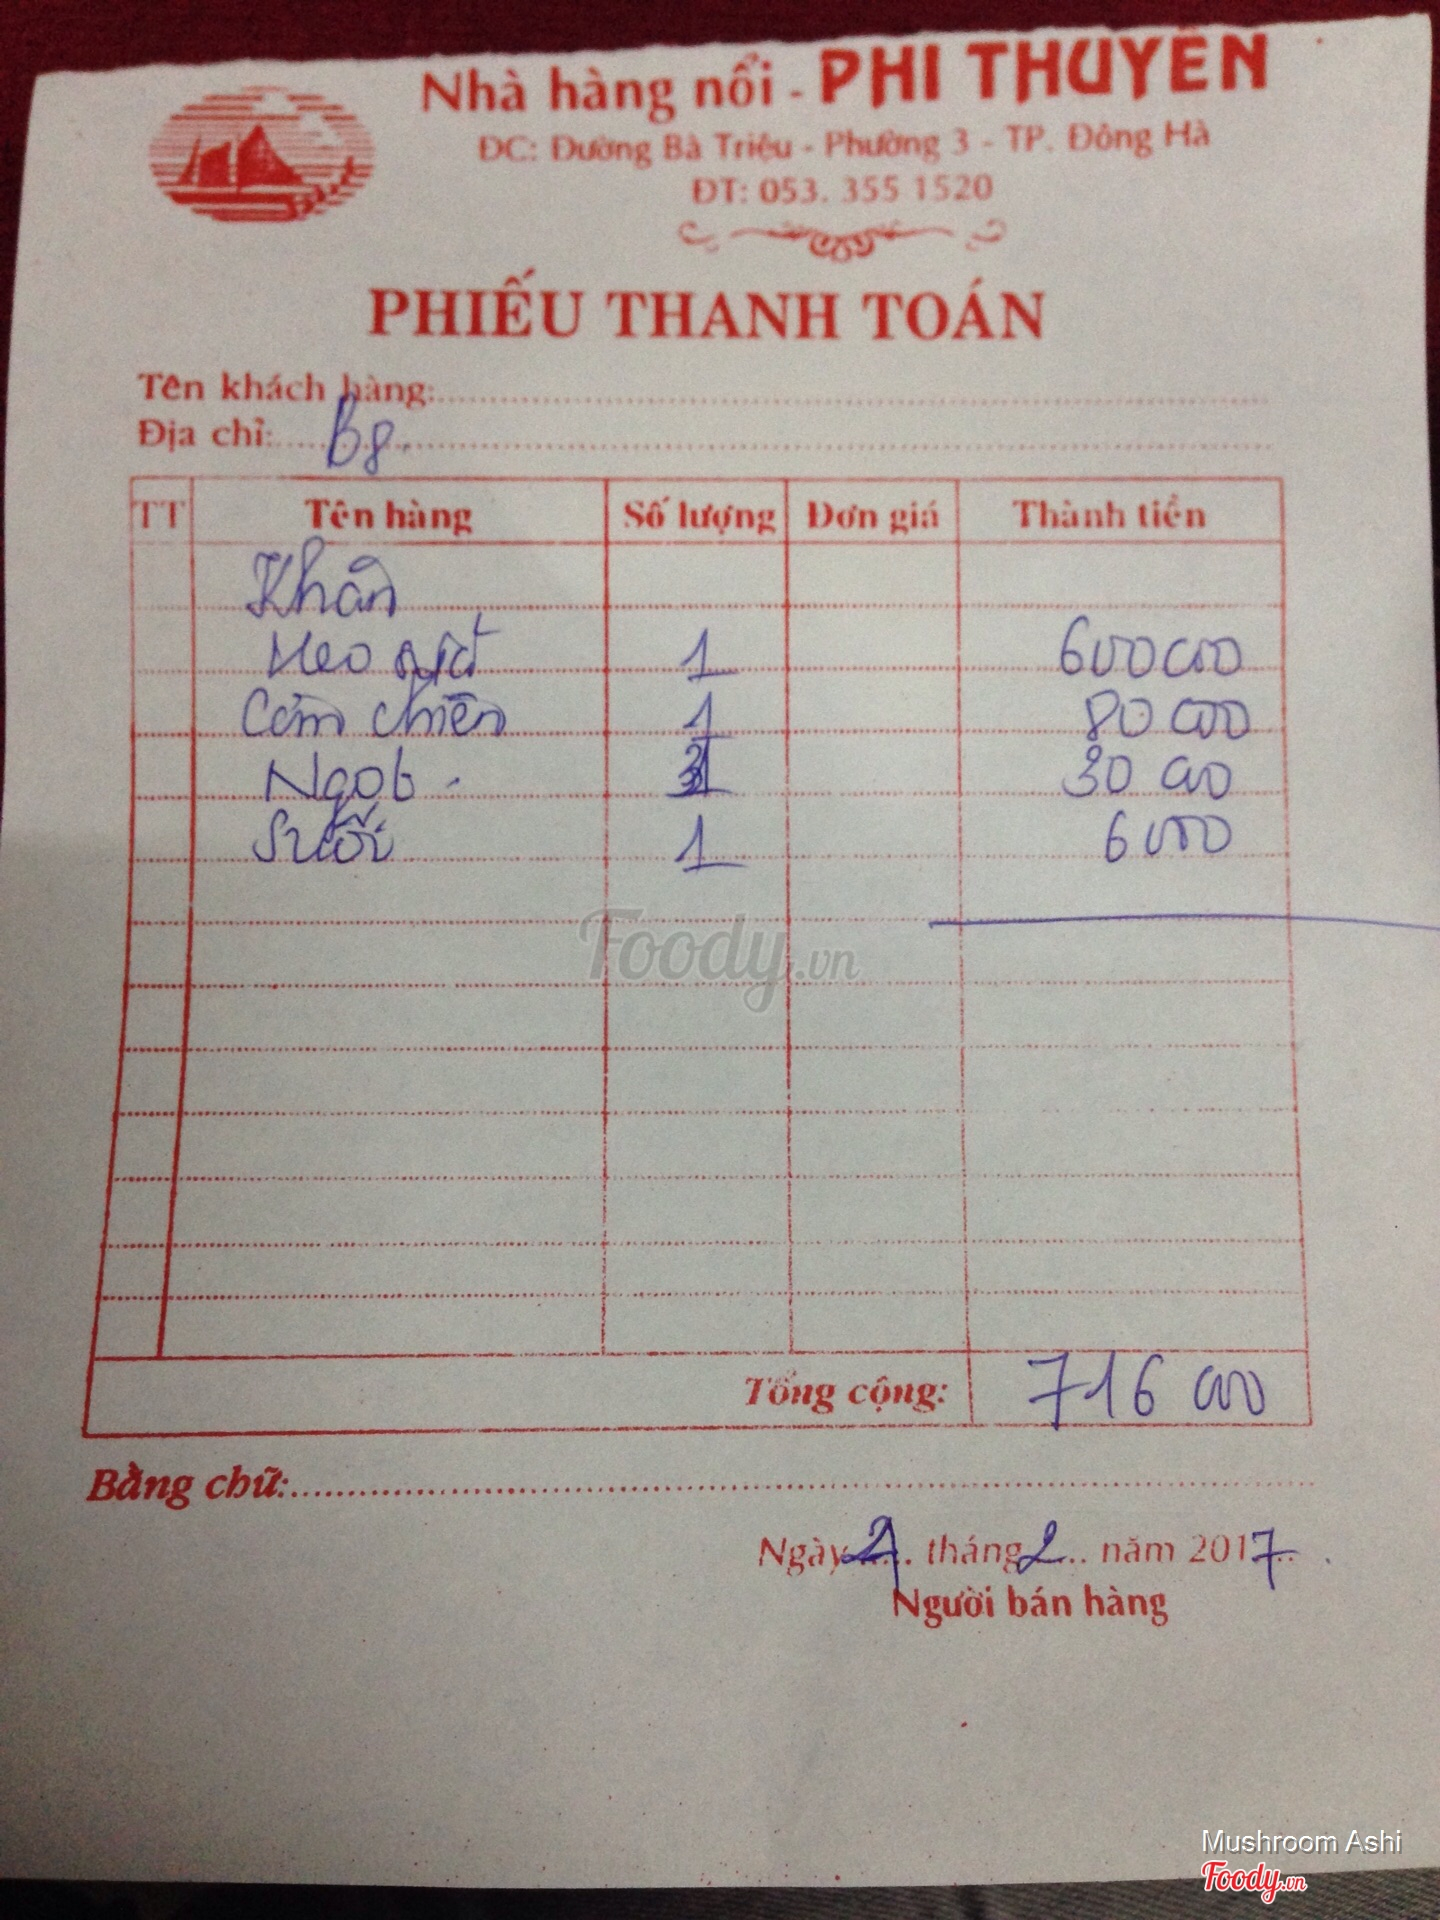 Nhà hàng nổi - PHI THUYỀN
ĐC: Đường Bà Triệu - Phường 3 - TP. Đông Hà
ĐT: 053. 355 1520
PHIẾU THANH TOÁN
Tên khách hàng:
Địa chỉ: B8
TT Tên hàng Số lượng Đơn giá Thành tiền
Khăn
Heo 1 600000
Cơm chiên 1 80 000
Ngọt 30 000
Suối 1 6000
Foody.vn
Tổng cộng: 716 000
Bằng chữ:
Ngày tháng 2 năm 2017
Người bán hàng
Mushroom Ashi
Foody.vn